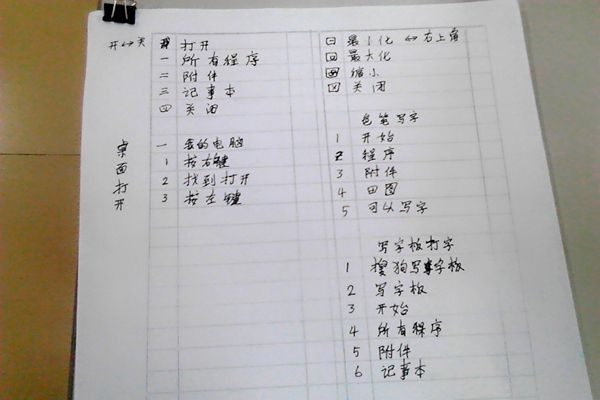 开↔关
打开
一 所有程序
二 附件
三 记事本
四 关闭
桌面打开
一 我的电脑
1 按右键
2 找到打开
3 按左键
一 最小化 ↔ 右上角
二 最大化
三 缩小
四 关闭
色笔写字
1 开始
2 程序
3 附件
4 田图
5 可以写字
写字板打字
1 搜狗写字板
2 写字板
3 开始
4 所有程序
5 附件
6 记事本